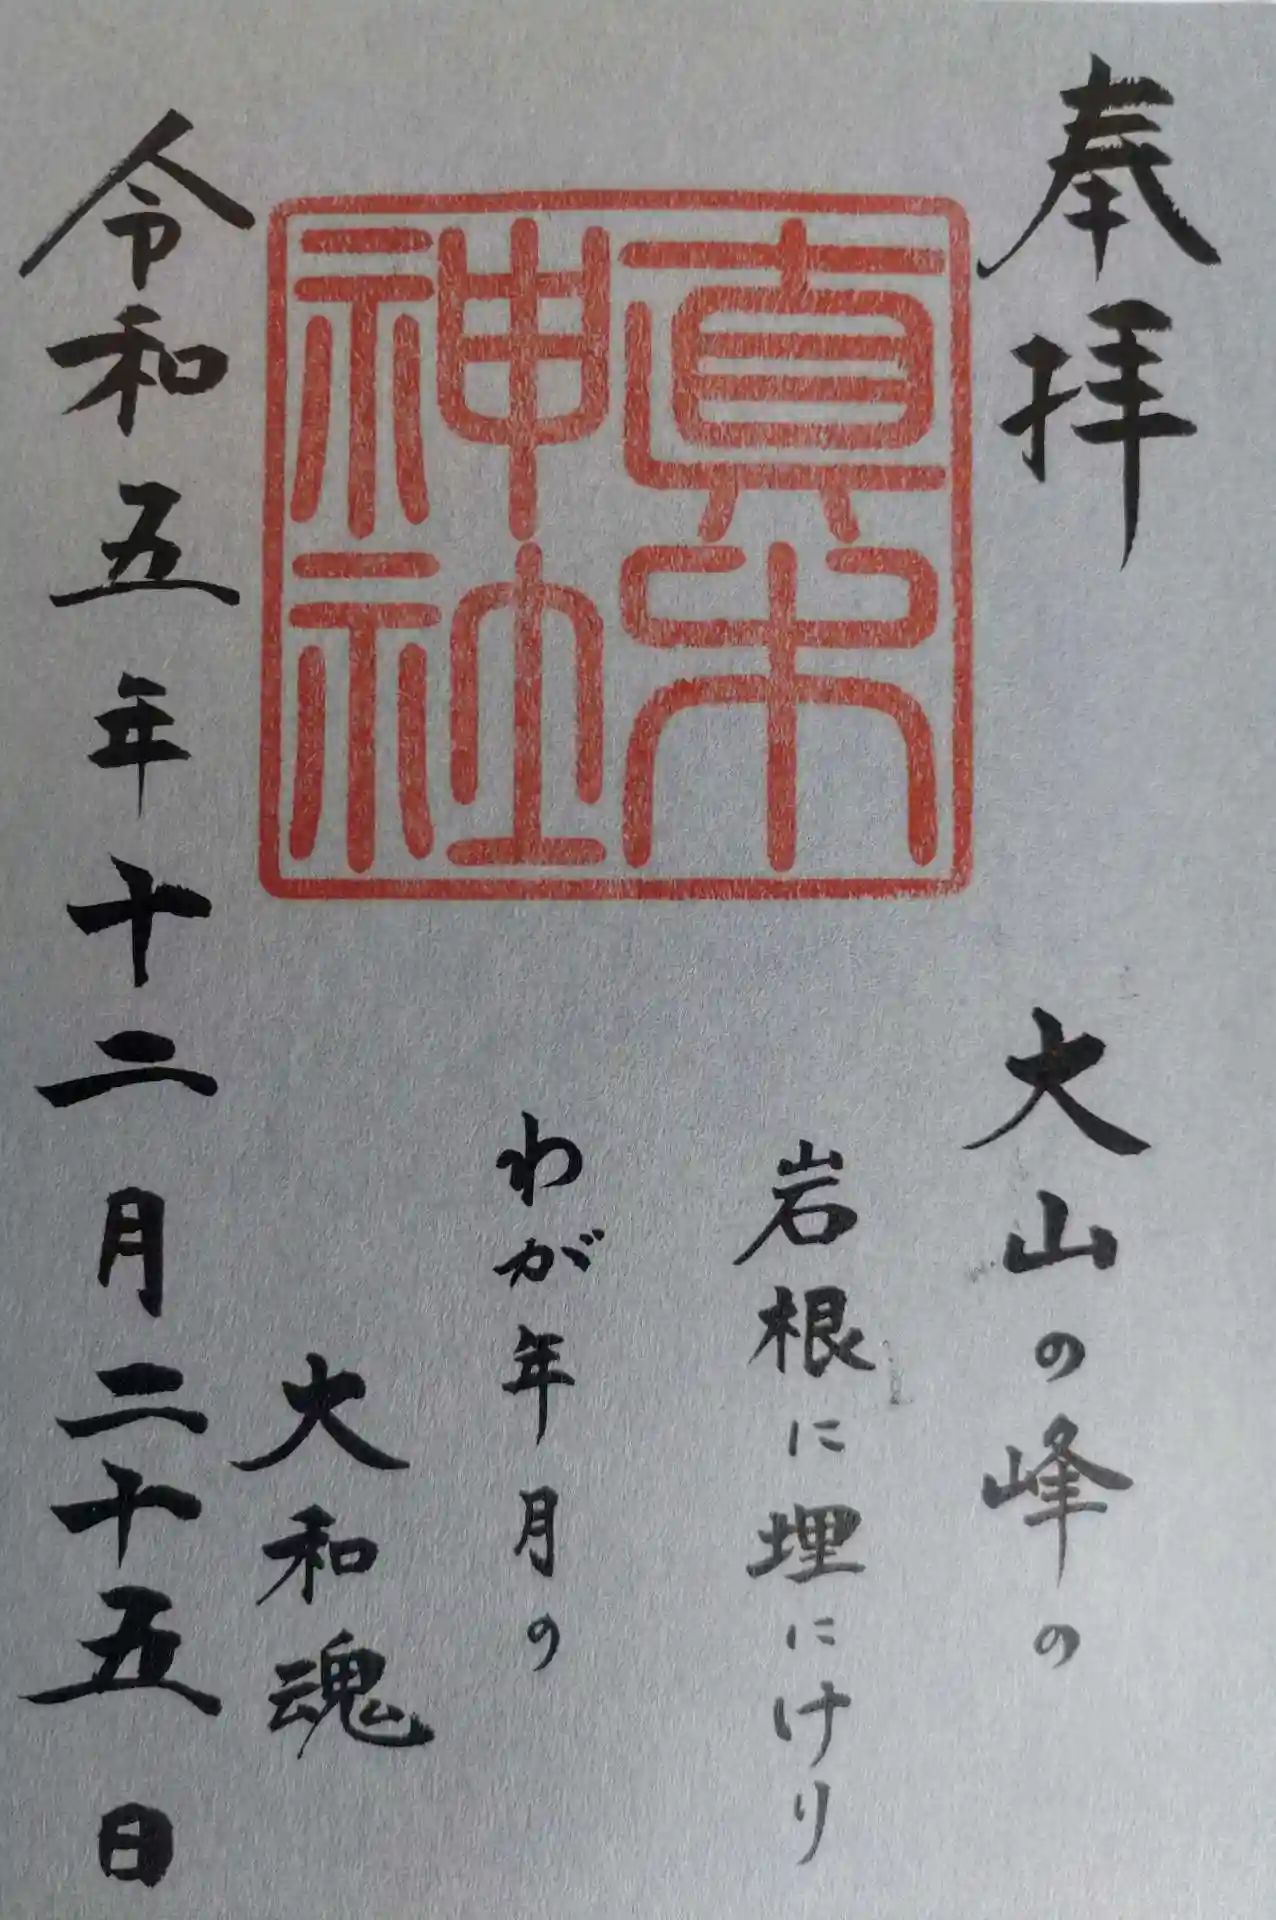 奉拝
眞木
神社
大山の峰の
岩根に埋にけり
わが年月の
大和魂
令和五年十二月二十五日